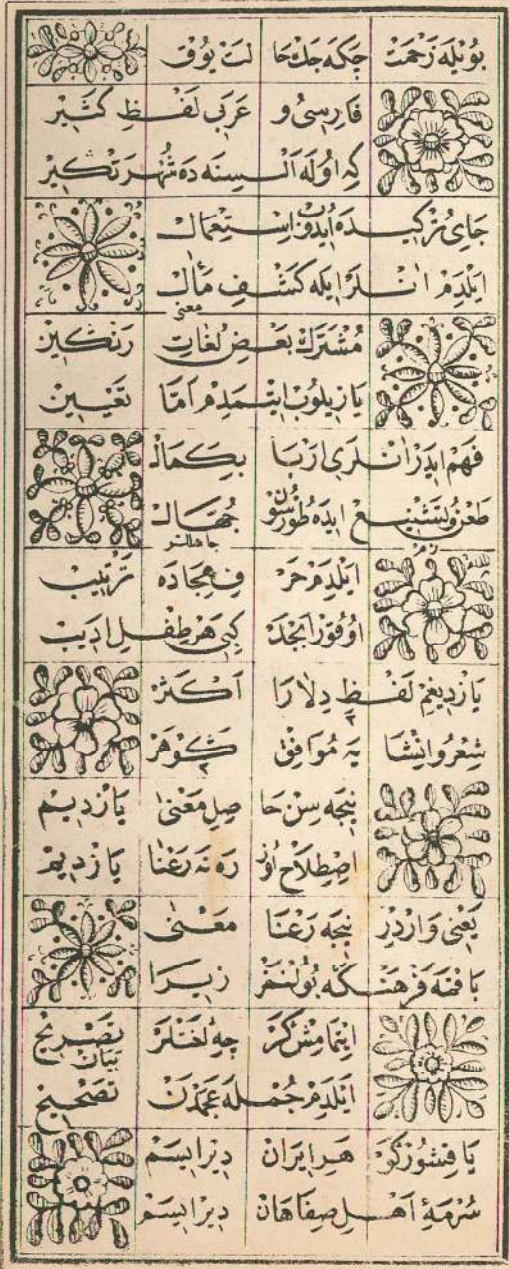 بویله زحمت چکه جك حا لت یوق
فارسی و عربی لفظ کثیر
که اوله السنه ده شهرتکیر
جای ترکیده ایدوب استعمال
ایلدم انلر ایله کشف مأل
معنی
مشترك بعض لغات رنکین
یازیلوب ایتمدم اما تعیین
فهم ایدر انلری اربا بکمال
طعن و تشنیع ایده طورسون جهال
جاهللر
ایلدم حر ف هجاده ترتیب
اوقور ابجد کبی هر طفل ادیب
یازدیغم لفظ دلارا اکثر
شعر و انشا یه موافق کوهر
نیجه سن حا صل معنی یازدیم
اصطلاح اوز ره نه رعنا یازدیم
یعنی واردر نیجه رعنا معنی
بافته فرهنکه بولنمز زیرا
ایتمامش کر چه لغتلر تصریح
بیان
ایلدم جمله عجمدن تصحیح
یا فشورکو هر ایران دیرایسم
سرمهٔ اهل صفاهان دیرایسم